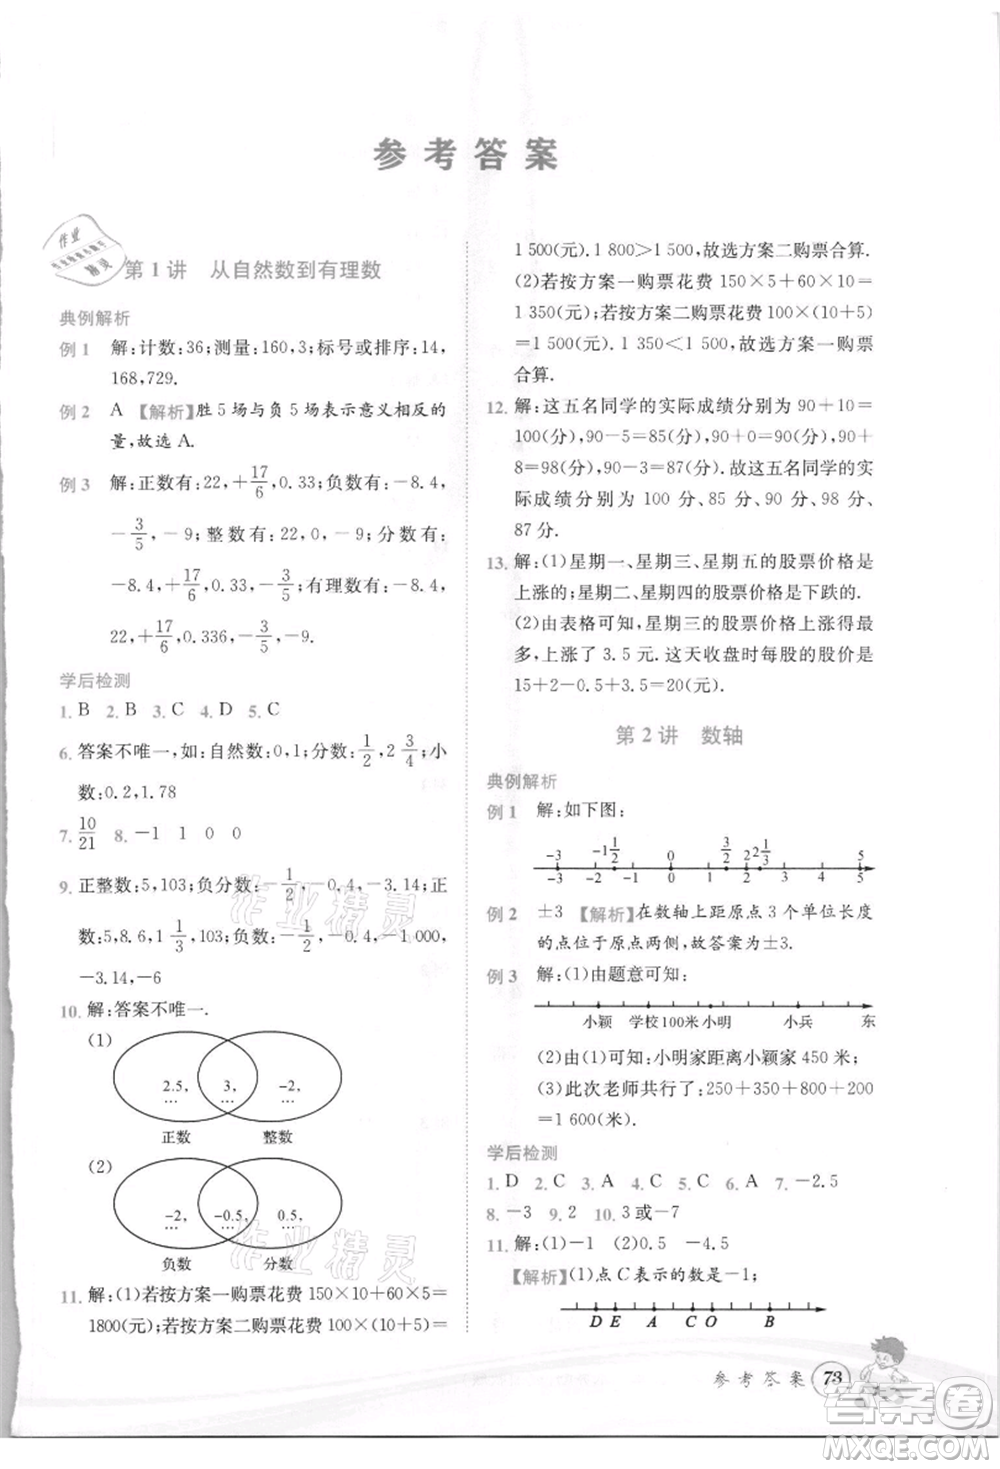 参考答案
作业
精灵
第1讲 从自然数到有理数
典例解析
例1 解:计数:36;测量:160,3;标号或排序:14,
168,729.
例2 A 【解析】胜5场与负5场表示意义相反的
量,故选A.
例3 解:正数有:22,+17/6,0.33;负数有:-8.4,
-3/5,-9;整数有:22,-9;分数有:
-8.4,+17/6,0.33,-3/5;有理数有:-8.4,
22,+17/6,0.336,-3/5,-9.
学后检测
1. B 2. B 3. C 4. D 5. C
6. 答案不唯一,如:自然数:0,1;分数:1/2,2 3/4;小
数:0.2,1.78
7. 10/21 8. -1 1 0 0
9. 正整数:5,103;负分数:-1/2,-3.14;正
数:5,8.6,1/3,103;负数:-1/2,-1 000,
-3.14,-6
10. 解:答案不唯一.
(1)
2.5, 3, -2,
… … …
正数 整数
(2)
-2, -0.5, 0.5,
… … …
负数 分数
11. 解:(1)若按方案一购票花费150×10+60×5=
1800(元);若按方案二购票花费100×(10+5)=
1 500(元).1 800>1 500,故选方案二购票合算.
(2)若按方案一购票花费150×5+60×10=
1 350(元);若按方案二购票花费100×(10+5)
=1 500(元).1 350<1 500,故选方案一购票
合算.
12. 解:这五名同学的实际成绩分别为90+10=
100(分),90-5=85(分),90+0=90(分),90
+8=98(分),90-3=87(分).故这五名同学的实
际成绩分别为100分、85分、90分、98分、
87分.
13. 解:(1)星期一、星期三、星期五的股票价格是
上涨的;星期二、星期四的股票价格是下跌的.
(2)由表格可知,星期三的股票价格上涨得最
多,上涨了3.5元.这天收盘时每股的股价为
15+2-0.5+3.5=20(元).
第2讲 数轴
典例解析
例1 解:如下图:
-3 -1 1/2 0 2 2 1/3 5
-3 -2 -1 0 1 2 3 5
例2 ±3 【解析】在数轴上距原点3个单位长度
的点位于原点两侧,故答案为±3.
例3 解:(1)由题意可知:
小颖 学校100米小明 小兵 东
(2)由(1)可知:小明家距离小颖家450米;
(3)此次老师共行了:250+350+800+200
=1 600(米).
学后检测
1. D 2. C 3. A 4. C 5. D 6. A 7. -2.5
8. -3 9. 2 10. 3或-7
11. 解:(1)-1 (2)0.5 -4.5
【解析】(1)点C表示的数是-1;
D E A C O B
参考答案 73
作业精灵
作业精灵
答案卷
MXQE.COM